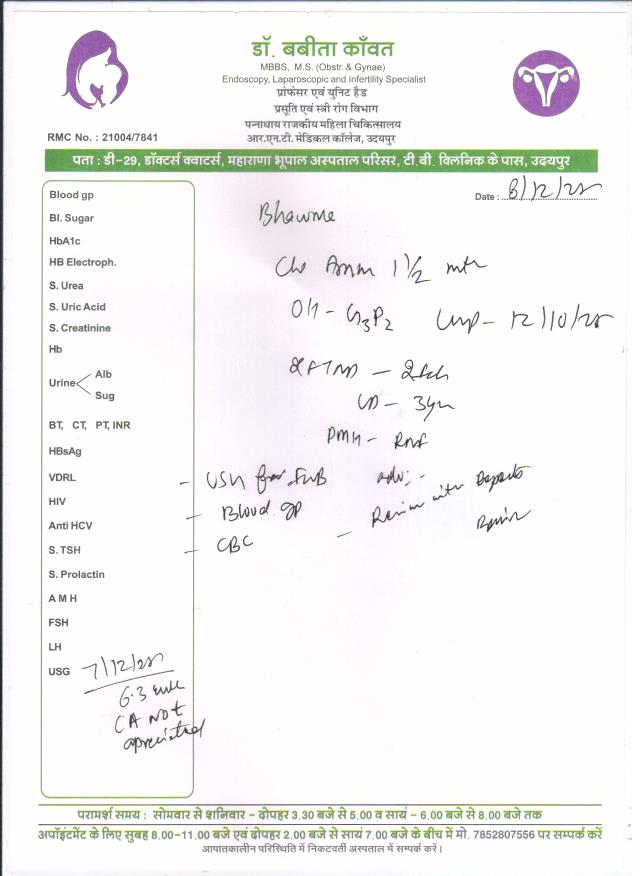 डॉ. बबीता काँवत
MBBS, M.S. (Obstr. & Gynae)
Endoscopy, Laparoscopic and Infertility Specialist
प्रोफेसर एवं युनिट हैड
प्रसूति एवं स्त्री रोग विभाग
पन्नाधाय राजकीय महिला चिकित्सालय
RMC No. : 21004/7841
आर.एन.टी. मेडिकल कॉलेज, उदयपुर
पता : डी-29, डॉक्टर्स क्वाटर्स, महाराणा भूपाल अस्पताल परिसर, टी.बी. क्लिनिक के पास, उदयपुर
Date : 8/12/25
Blood gp
Bl. Sugar
HbA1c
HB Electroph.
S. Urea
S. Uric Acid
S. Creatinine
Hb
Urine
Alb
Sug
BT, CT, PT, INR
HBsAg
VDRL
HIV
Anti HCV
S. TSH
S. Prolactin
A M H
FSH
LH
USG 7/12/25
6.3 
CA NOT
apreciated
1 1/2
OH - G3P2 LMP - 12/10/25
2 FTND -
LD - 3yr
PMH -
- USG for FWB adv:-
- Blood gp - Review with Reports
- CBC
परामर्श समय : सोमवार से शनिवार - दोपहर 3.30 बजे से 5.00 व सायं - 6.00 बजे से 8.00 बजे तक
अपॉइंटमेंट के लिए सुबह 8.00-11.00 बजे एवं दोपहर 2.00 बजे से सायं 7.00 बजे के बीच में मो. 7852807556 पर सम्पर्क करें
आपातकालीन परिस्थिति में निकटवर्ती अस्पताल में सम्पर्क करें।